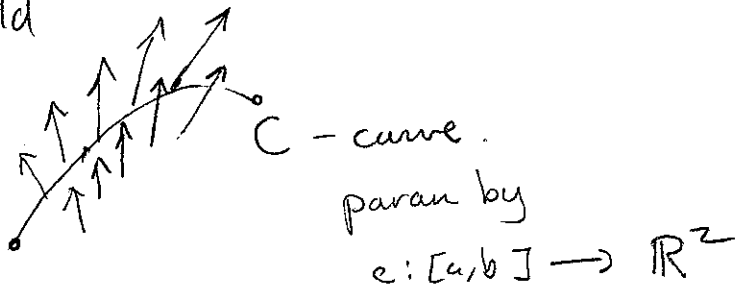 ld
C - curve.
param by
c: [a,b] ⟶ ℝ²